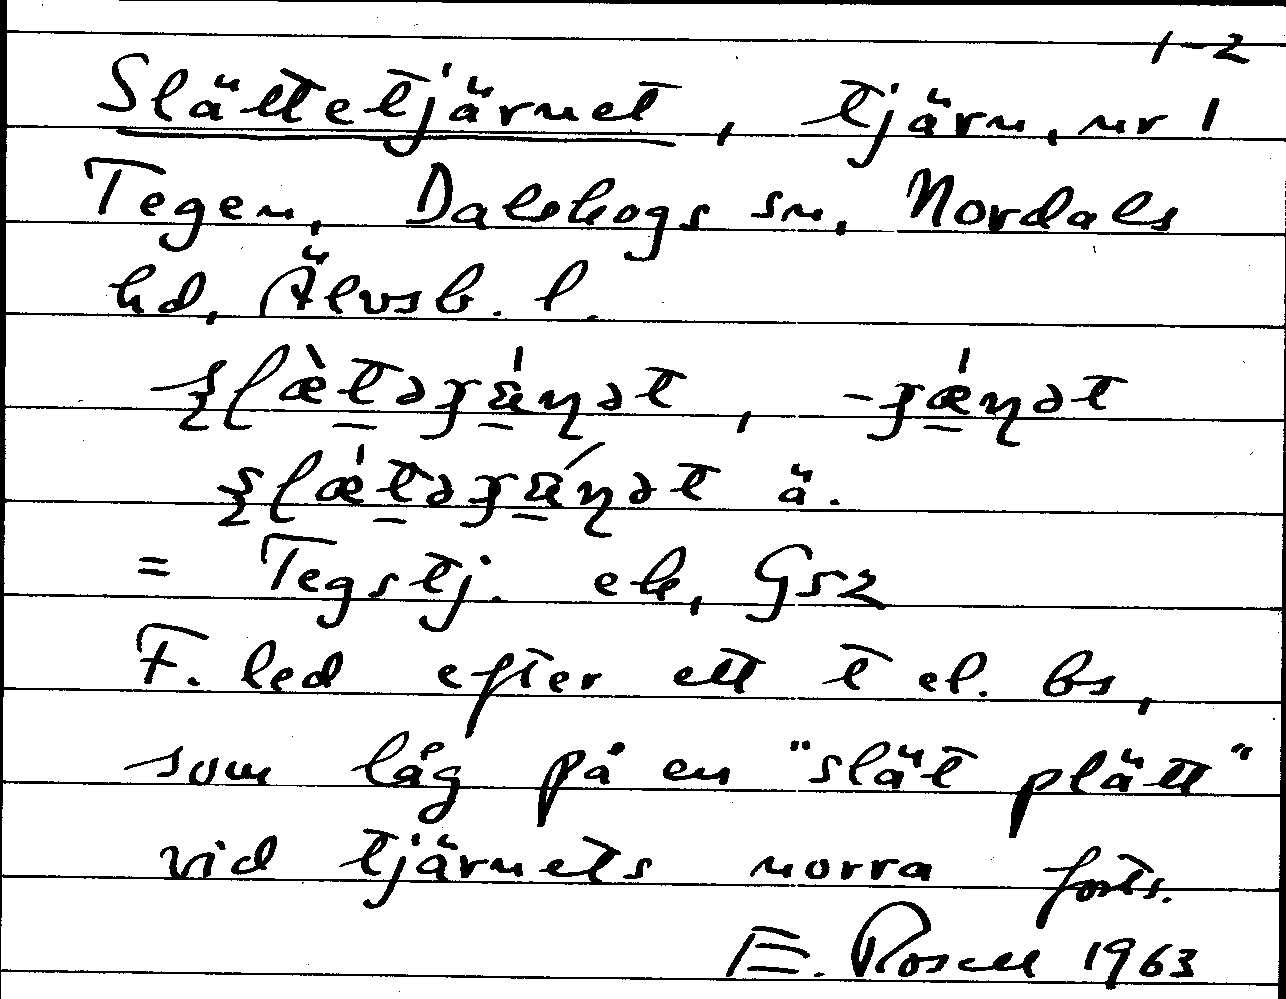 1-2
Slättetjärnet, tjärn, nr 1
Tegen, Dalskogs sn, Nordals
hd, Älvsb. l.
ä.
= Tegstj. ek, G52
F. led efter ett t el. bs,
som låg på en "slät plätt"
vid tjärnets norra forts.
E. Rosell 1963